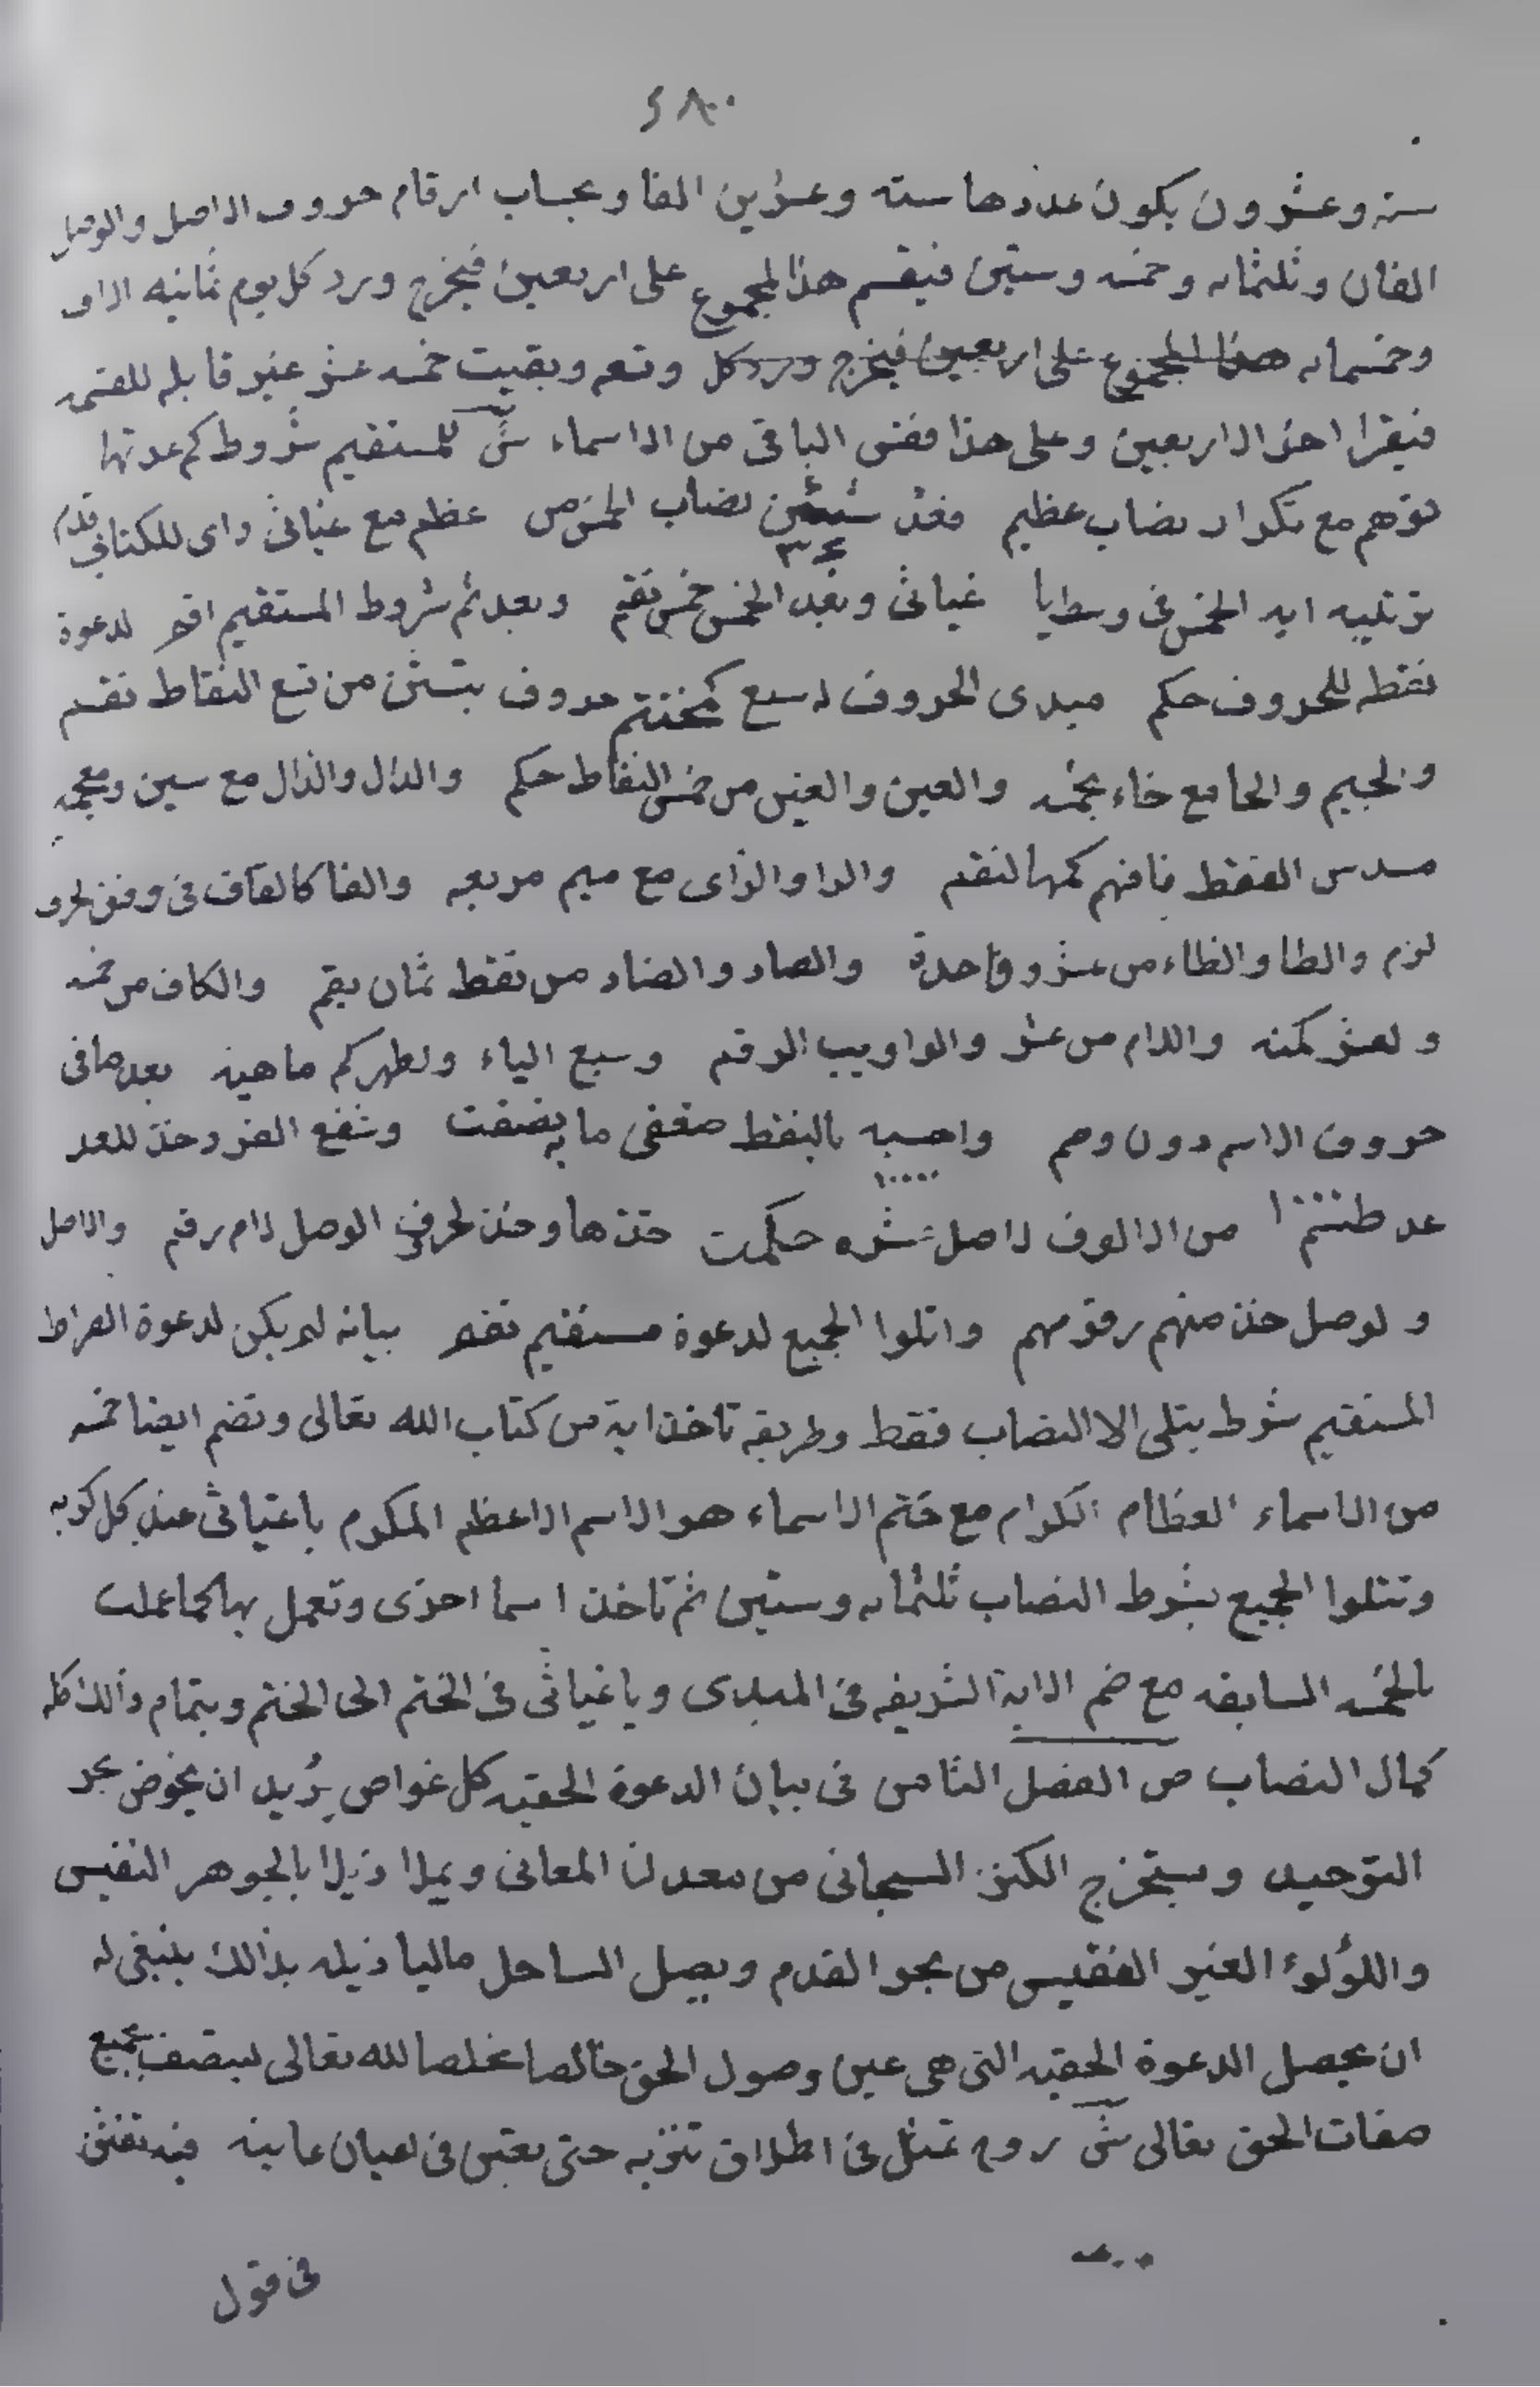 سته وعشرون يكون عددها سته وعشرين الفا وبحساب ارقام حروف الاصل والوصل
الفان وثلثمائه وخمسه وستين فيقسم هذا المجموع على اربعين فيخرج ورد كل يوم ثمانيه الاف
وخمسمائه هذا المجموع على اربعين فيخرج ورد كل وتسع وبقيت خمسه عشر غير قابله للقسمه
فيقرا اخر الاربعين وعلى هذا فقس الباقى من الاسماء ش للمستقيم شروط كم عدتها
مع تكرار نصاب عظيم فغد نصاب الخمس من عظم مع غياثى واى للكتاب
ايه الخمس فى وسطايا غياثى وبعد الخمس خمس تقم وبعد ثم شروط المستقيم اقم لدعوة
نقطه للحروف حكم مبدى الحروف لسبع كمختتم حروف بتثن من تسع النقاط نقسم
والجيم والحا مع خاء بخمسه والعين والغين من خمس النقاط حكم والدال والذال مع سين ومعجمه
مسدس النقط فافهم كمها لتقم والرا والزاى مع ميم مربعه والفا كالقاف فى وفق لحرف
لزم والطا والظاء من عشر وواحدة والصاد والضاد من نقط ثمان يقم والكاف من خمسه
ولعشر كمنه واللام من عشر والواو يب الرقم وسبع الياء ولطهركم ماهيه بعد ما فى
حروف الاسم دون وهم واحسبه بالنقط ضعفى ما يضفت وشفع الفرد خذ للعد
١٠٠٠٠٠
عد من الالوف لاصل شره حكمت خذها وخذ لحرف الوصل لام رقم والاصل
ولوصل خذ منهم رقومهم واتلوا الجميع لدعوة مستقيم تقم بيانه لم يكن لدعوة الصراط
المستقيم شرط يتلى الا النصاب فقط وطريقه تاخذ اية من كتاب الله تعالى وتضم ايضا خمسه
من الاسماء العظام الكرام مع ختم الاسماء هو الاسم الاعظم المكرم يا غياثى عند كل كربه
وتتلوا الجميع بشرط النصاب ثلثمائه وستين ثم تاخذ اسما اخرى وتعمل بها كما عملت
بالخمسه السابقه مع ضم الاية الشريفه فى المبدى ويا غياثى فى الختم الى الختم وبتمام ذالك كله
كمال النصاب ص الفصل الثامن فى بيان الدعوة الحقيه كل غواص يريد ان يخوض بحر
التوحيد ويستخرج الكنز السبحانى من معدن المعانى ويملا ذيلا بالجوهر النفيس
واللؤلوء الغير الفقيس من بحر القدم ويصل الساحل ماليا ذيله بذالك ينبغى له
ان يحصل الدعوة الحقيه التى هى عين وصول الحق خالصا مخلصا لله تعالى ليتصف بجميع
صفات الحق تعالى ش روح تمثل فى اطلاق تنزيه حتى يعتبر فى اعيان عاينه
فى قول